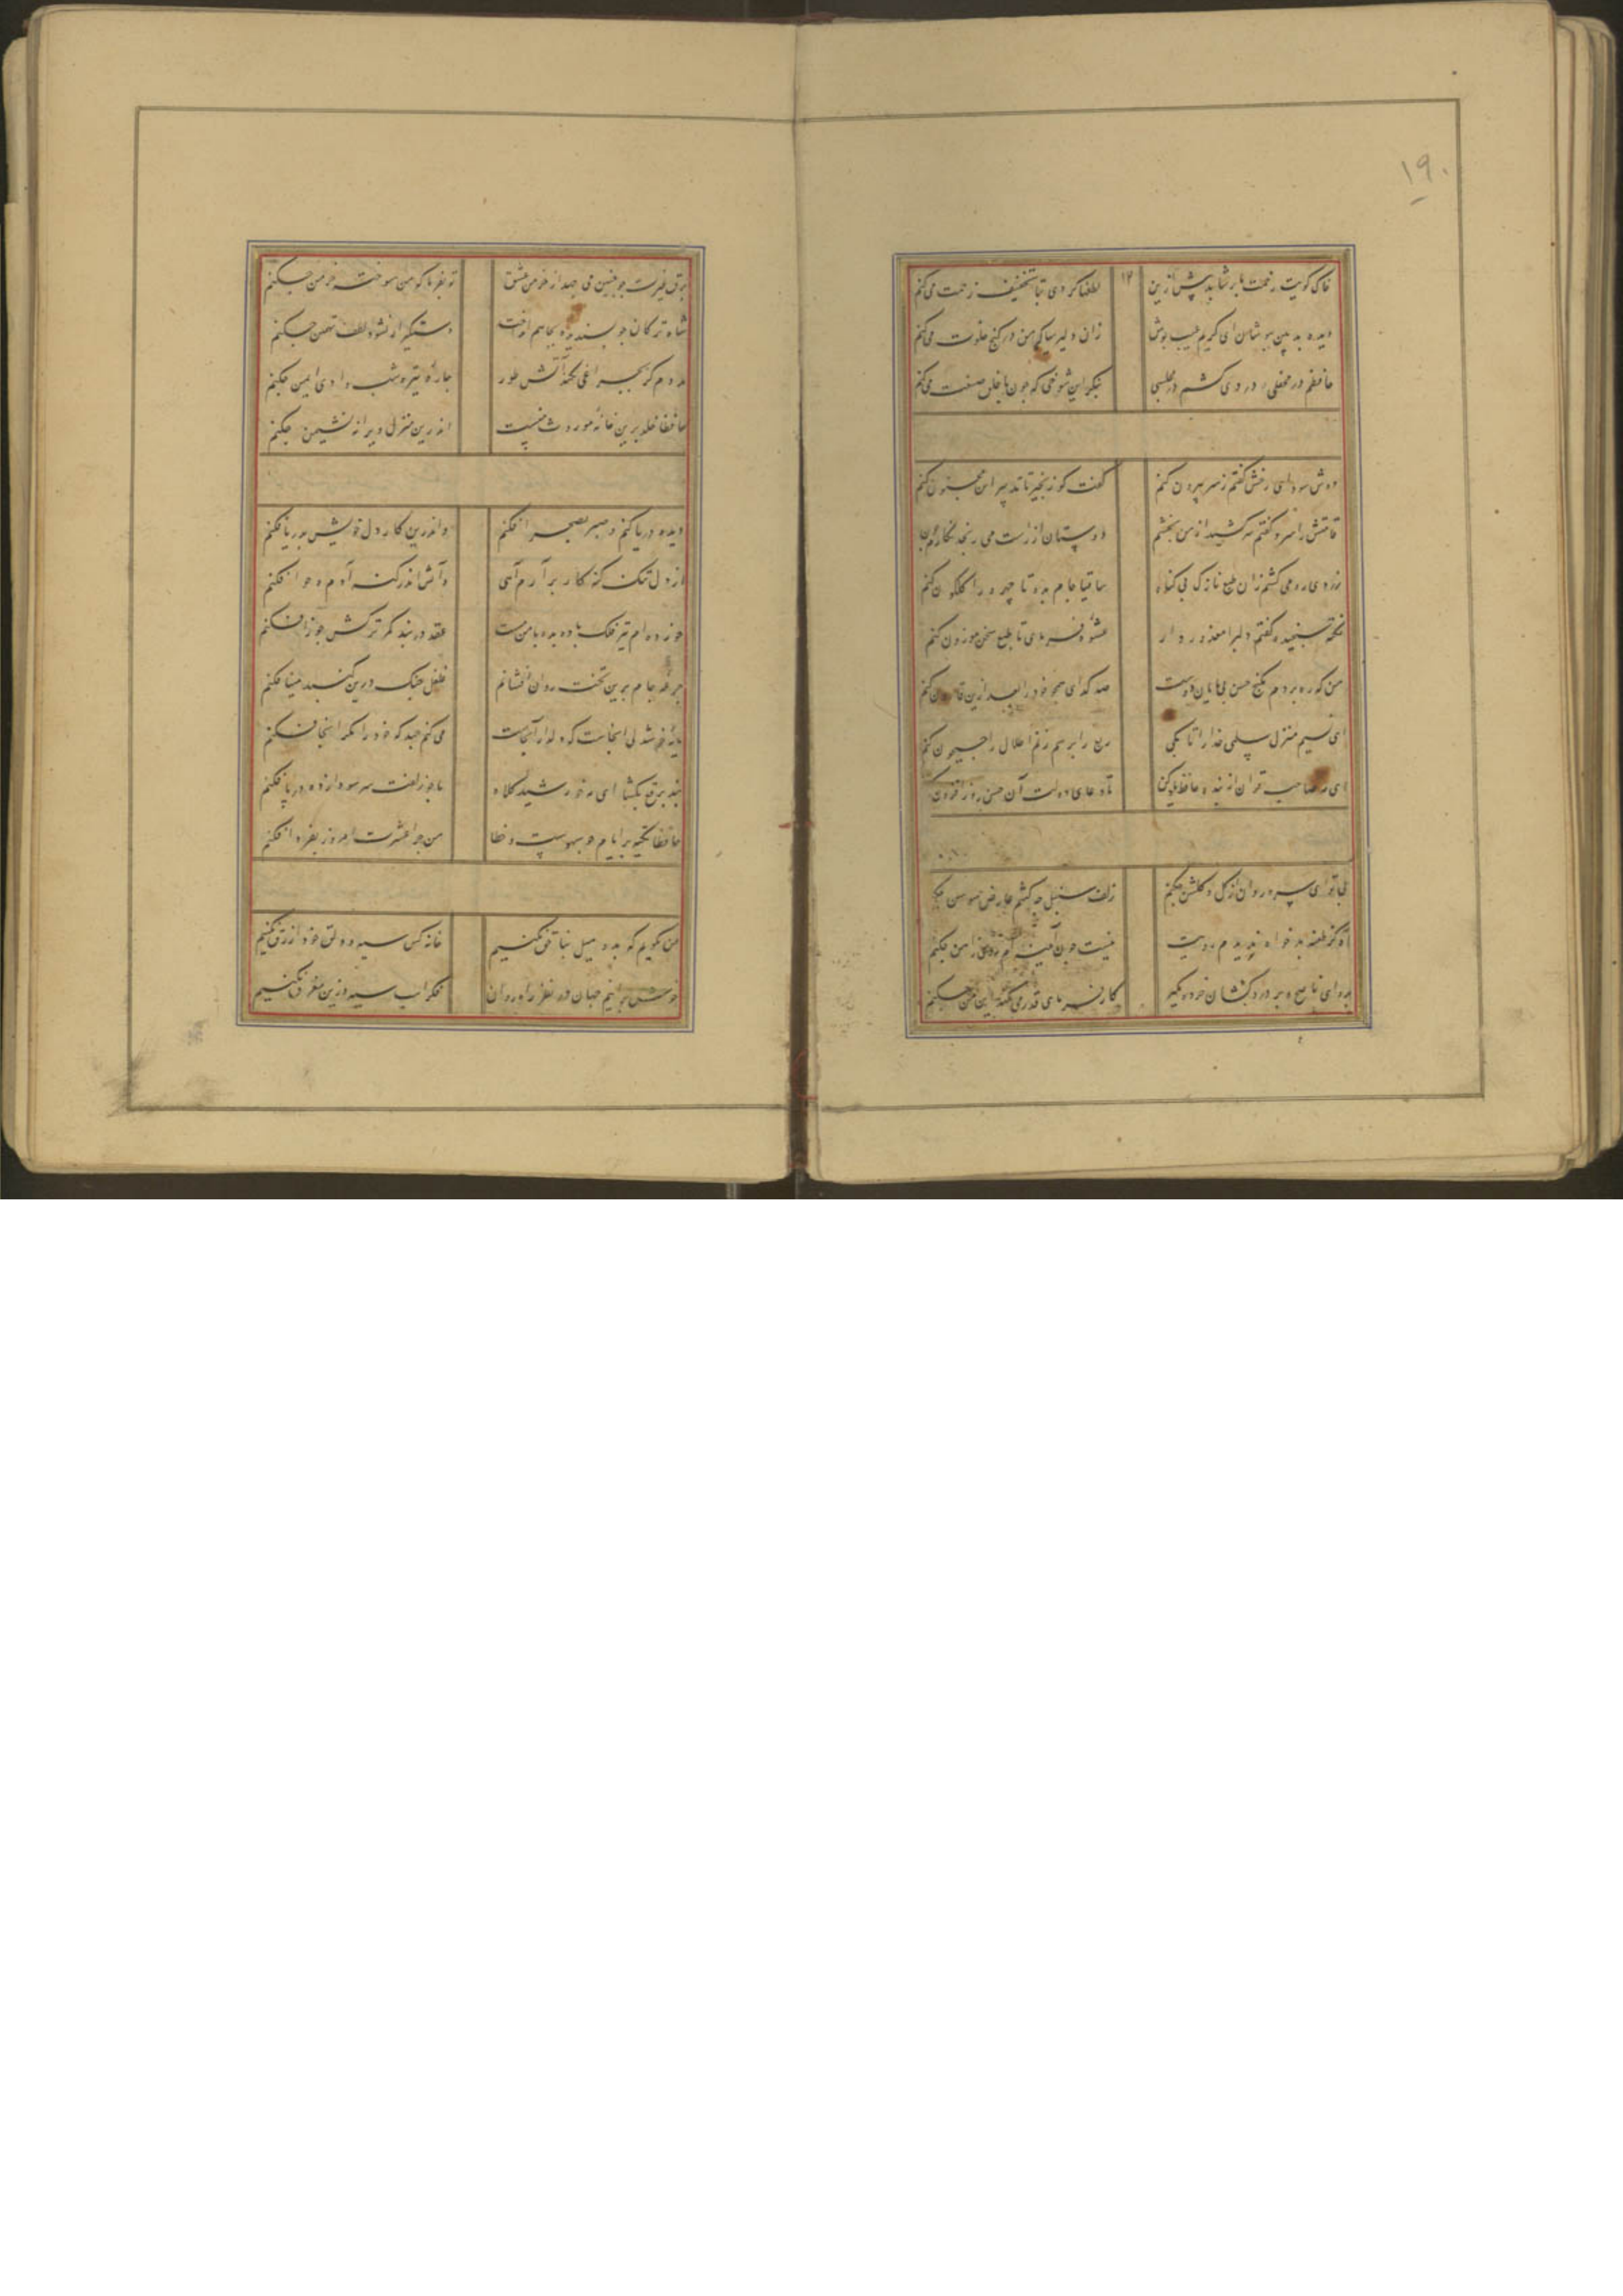 ۱۹۰
خاک کویت زحمت ما بر نتابد پیش ازین ۱۲ لطفها کردی بتا تخفیف زحمت می کنم
دیده بد بین بپوشان ای کریم عیب پوش زان دلیریها که من در کنج خلوت می کنم
حافظم در محفلی دردی کشم در مجلسی بنگر این شوخی که چون با خلق صنعت می کنم
دوش سودای رخش گفتم ز سر بیرون کنم گفت کو زنجیر تا تدبیر این مجنون کنم
قامتش را سرو گفتم سر کشید از من بخشم دوستان از راست می رنجد نگارم چون
زرد رویی می کشم زان طبع نازک بی گناه ساقیا جام بده تا چهره را گلگون کنم
نکته نسنجیده گفتم دلبرا معذور دار عشوه فرمای تا طبع سخن موزون کنم
من که ره بردم بگنج حسن بی پایان دوست صد گدای همچو خود را بعد ازین قارون کنم
ای نسیم منزل سلمی خدا را تا بکی ربع را بر هم زنم اطلال را جیحون کنم
ای مه صاحب قران از بنده حافظ یاد کن تا دعای دولت آن حسن روز افزون کنم
بی تو ای سرو روان از گل و گلشن چکنم زلف سنبل چه کشم عارض سوسن چکنم
آه کز طعنه بدخواه ندیدم رویت نیست چون آینه ام روی ز آهن چکنم
برو ای ناصح و بر درد کشان خرده مگیر کارفرمای قدر می کند این من چکنم
برق غیرت چو چنین می جهد از مکمن عشق تو بفرما که من سوخته خرمن چکنم
شاه ترکان چو پسندید و بچاهم انداخت دستگیر ار نشود لطف تهمتن چکنم
مددم گر بچراغی نکند آتش طور چاره تیره شب وادی ایمن چکنم
حافظا خلد برین خانه موروث منست اندرین منزل ویرانه نشیمن چکنم
دیده دریا کنم و صبر بصحرا فکنم واندرین کار دل خویش بدریا فکنم
از دل تنگ گنه کار بر آرم آهی وآتش اندر گنه آدم و حوا فکنم
خورده ام تیر فلک باده بده تا من مست عقد در بند کمر ترکش جوزا فکنم
جرعه جام برین تخت روان افشانم غلغل چنگ درین گنبد مینا فکنم
مایه خوشدلی آنجاست که دلدار آنجاست می کنم جهد که خود را مگر آنجا فکنم
بند برقع بگشا ای مه خورشید کلاه تا چو زلفت سر سودا زده در پا فکنم
حافظا تکیه بر ایام چو سهوست و خطا من چرا عشرت امروز بفردا فکنم
من نگویم که بد و میل بناحق نکنیم خانه کس سیه و دلق خود ازرق نکنیم
خوش برانیم جهان در نظر راهروان فکر اسب سیه و زین مغرق نکنیم